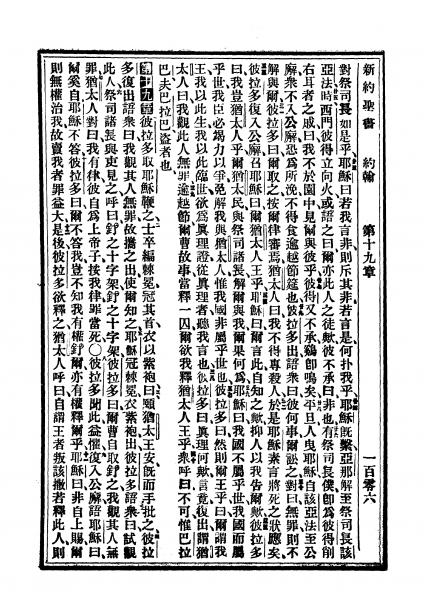 新約聖書 約翰 第十九章 一百零六
對祭司長如是乎耶穌曰若我言非則斥其非若言是何扑我乎耶穌旣繫亞那解至祭司長該
亞法時西門彼得立向火或語之曰爾亦此人之徒歟彼不承曰非也有祭司長僕卽爲彼得削
右耳者之戚曰我不於園中見爾與彼乎彼得又不承鷄卽鳴矣平旦人曳耶穌自該亞法至公
廨衆不入公廨恐爲所浼不得食逾越節筵也彼拉多出語衆曰彼何事爾訟之對曰無罪則不
解與爾彼拉多曰爾取之按爾律審焉猶太人曰我不得專殺人於是耶穌素言將死之狀應矣
彼拉多復入公廨召耶穌曰爾猶太人王乎耶穌曰爾言此自知之歟抑人以我告爾歟彼拉多
曰我豈猶太人乎爾猶太民與祭司諸長解爾與我爾果何爲耶穌曰我國不屬乎世我國而屬
乎世我臣必竭力以爭免解我與猶太人惟我國非屬乎世也彼拉多曰然則爾王乎曰爾謂我
王我以此生我以此臨世欲爲眞理證從眞理者聽我言也彼拉多曰眞理何歟言竟復出謂猶
太人曰我觀此人無罪逾越節爾曹故事當釋一囚爾欲我釋猶太人王乎衆呼曰不可惟巴拉
巴夫巴拉巴盜者也
第十九章彼拉多取耶穌鞭之士卒編棘冕冠其首衣以紫袍曰願猶太人王安旣而手批之彼拉
多復出語衆曰我觀其人無罪故攜之出使爾知之耶穌冠棘冕衣紫袍出彼拉多語衆曰試觀
此人祭司諸長與吏見之呼曰釘之十字架釘之十字架彼拉多曰爾曹自取釘之我觀其人無
罪猶太人對曰我有律彼自爲上帝子按我律罪當死○彼拉多聞此益懼復入公廨語耶穌曰
爾奚自耶穌不答彼拉多曰爾不答我豈不知我有權釘爾亦有權釋爾乎耶穌曰非自上賜爾
則無權治我故賣我者罪益大是後彼拉多欲釋之猶太人呼曰自謂王者叛該撒若釋此人則